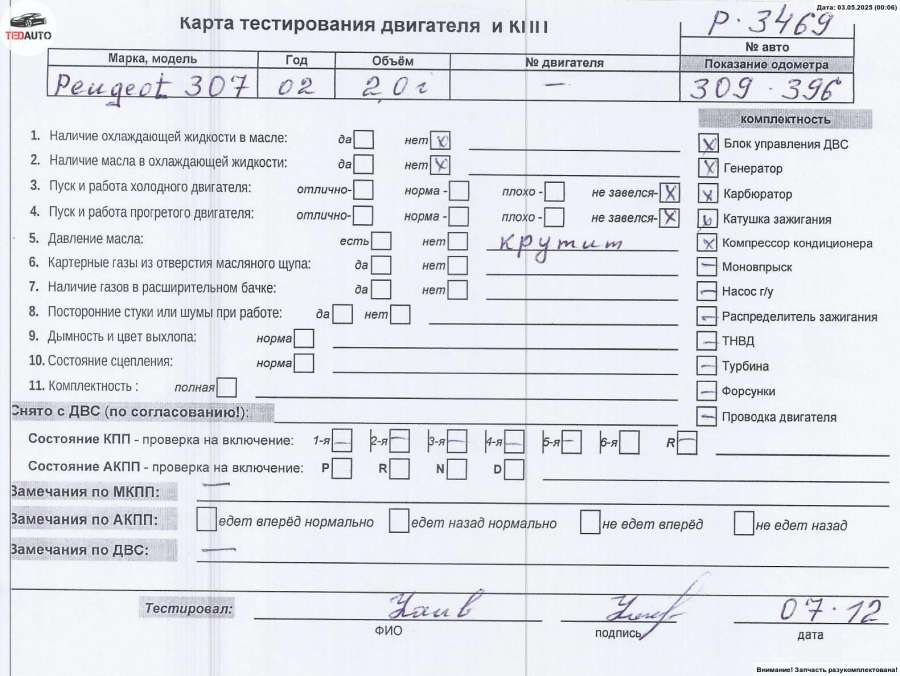 Дата: 03.05.2025 (00:06)
TEDAUTO
Карта тестирования двигателя и КПП
P-3469
№ авто
Марка, модель Год Объём № двигателя Показание одометра
Peugeot 307 02 2,0i — 309.396
комплектность
1. Наличие охлаждающей жидкости в масле: да нет x
Блок управления ДВС
2. Наличие масла в охлаждающей жидкости: да нет x
Генератор
3. Пуск и работа холодного двигателя: отлично- норма - плохо - не завелся- x
Карбюратор
4. Пуск и работа прогретого двигателя: отлично- норма - плохо - не завелся- x
Катушка зажигания
5. Давление масла: есть нет крутит
Компрессор кондиционера
6. Картерные газы из отверстия масляного щупа: да нет
Моновпрыск
7. Наличие газов в расширительном бачке: да нет
Насос г/у
8. Посторонние стуки или шумы при работе: да нет
Распределитель зажигания
9. Дымность и цвет выхлопа: норма
ТНВД
10. Состояние сцепления: норма
Турбина
11. Комплектность : полная
Форсунки
Снято с ДВС (по согласованию!):
Проводка двигателя
Состояние КПП - проверка на включение: 1-я 2-я 3-я 4-я 5-я 6-я R
Состояние АКПП - проверка на включение: P R N D
Замечания по МКПП: —
Замечания по АКПП: едет вперёд нормально едет назад нормально не едет вперёд не едет назад
Замечания по ДВС: —
Тестировал: 07.12
ФИО подпись дата
Внимание! Запчасть разукомплектована!